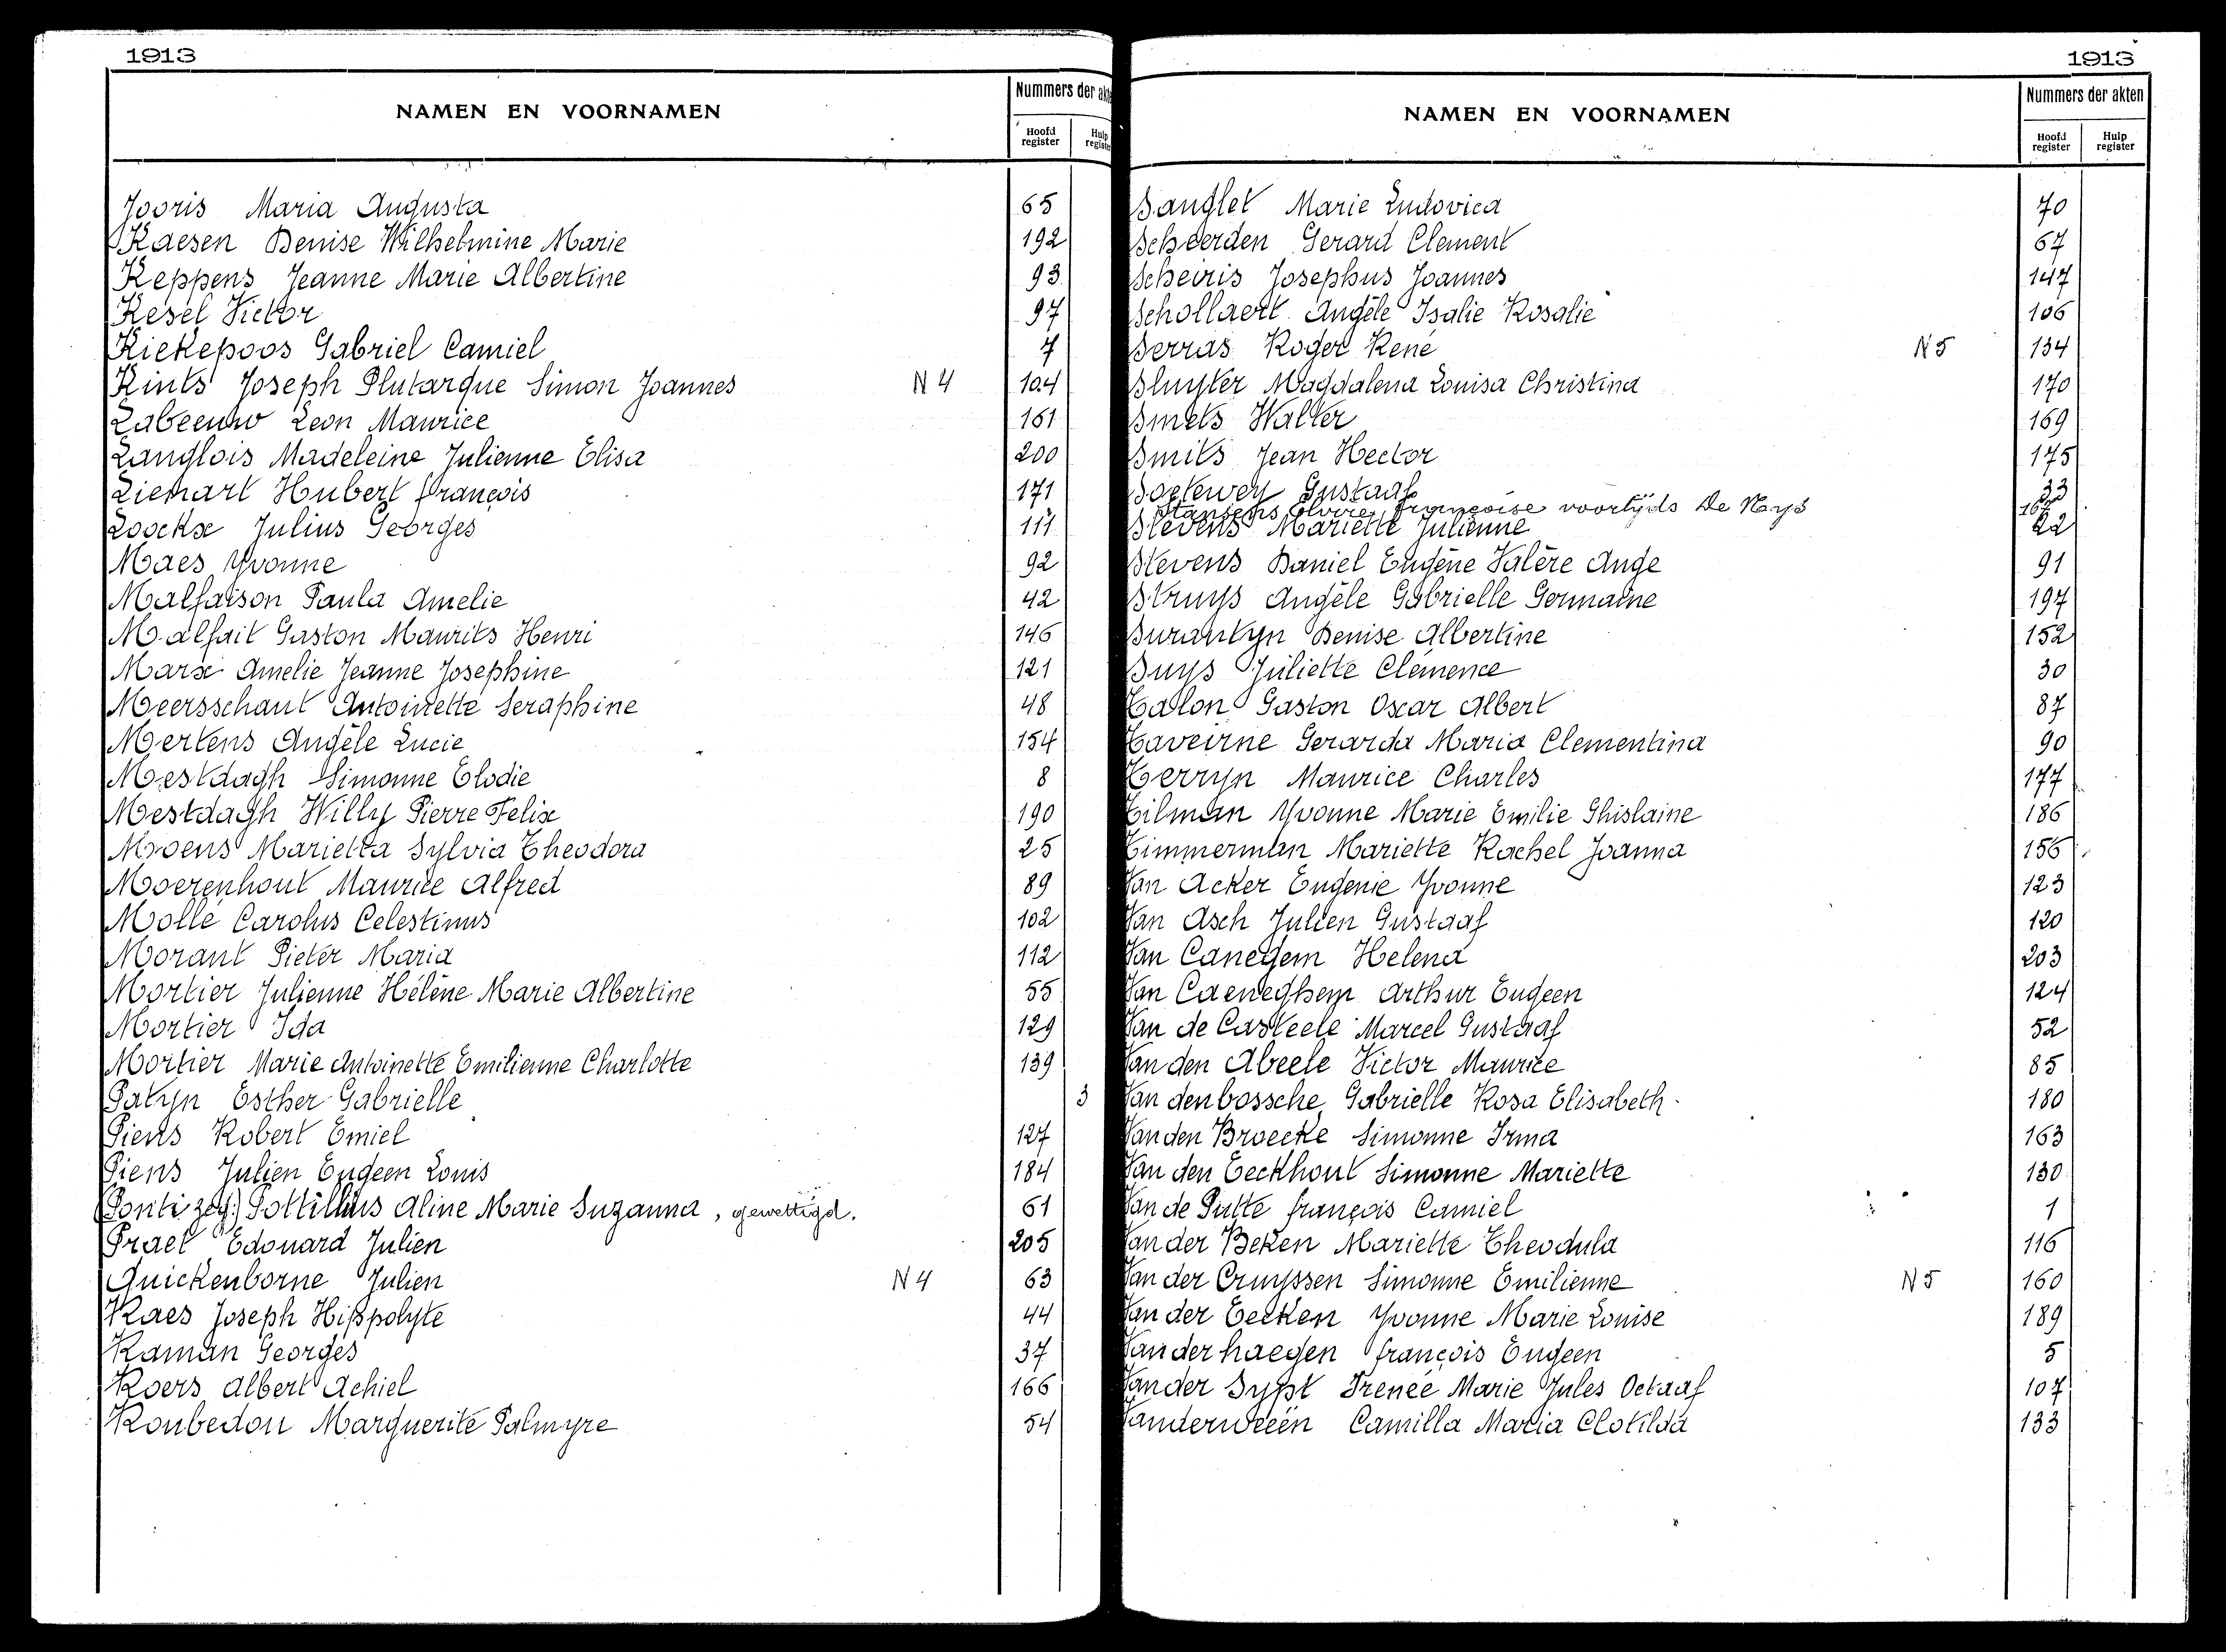 1913
NAMEN EN VOORNAMEN
Nummers der akte
Hoofd register
Hulp register
Jooris Maria Augusta 65
Kaesen Denise Wilhelmine Marie 192
Keppens Jeanne Marie Albertine 93
Kesel Victor 97
Kiekepoos Gabriel Camiel 7
Kints Joseph Plutarque Simon Joannes N 4 104
Labeeuw Leon Maurice 161
Langlois Madeleine Julienne Elisa 200
Lienart Hubert françois 171
Loockx Julius Georges 111
Maes Yvonne 92
Malfaison Paula Amelie 42
Malfait Gaston Maurits Henri 146
Marx Amelie Jeanne Josephine 121
Meersschaut Antoinette Seraphine 48
Mertens Angèle Lucie 154
Mestdagh Simonne Elodie 8
Mestdagh Willy Pierre Felix 190
Moens Marietta Sylvia Theodora 25
Moerenhout Maurice Alfred 89
Mollé Carolus Celestinus 102
Morant Pieter Maria 112
Mortier Julienne Hélène Marie Albertine 55
Mortier Ida 129
Mortier Marie Antoinette Emilienne Charlotte 139
Patyn Esther Gabrielle 3
Piens Robert Emiel 127
Piens Julien Eugeen Louis 184
(Ponti zeg:) Pottillius Aline Marie Suzanna, gewettigd. 61
Praet Edouard Julien 205
Quickenborne Julien N 4 63
Raes Joseph Hippolyte 44
Raman Georges 37
Roers Albert Achiel 166
Roubedou Marguerite Palmyre 54
1913
NAMEN EN VOORNAMEN
Nummers der akten
Hoofd register
Hulp register
Sanglet Marie Ludovica 70
Scheerden Gerard Clement 67
Scheiris Josephus Joannes 147
Schollaert Angèle Isalie Rosalie 106
Serras Roger René N 5 134
Sluyter Magdalena Louisa Christina 170
Smets Walter 169
Smits Jean Hector 175
Soetewey Gustaaf 33
Stansens Elvire françoise voortijds De Nays
Stevens Mariette Julienne 22
Stevens Daniel Eugène Valère Ange 91
Struys Angèle Gabrielle Germaine 197
Surantyn Denise Albertine 152
Suys Juliette Clémence 30
Talon Gaston Oscar Albert 87
Taveirne Gerarda Maria Clementina 90
Terryn Maurice Charles 177
Tilman Yvonne Marie Emilie Ghislaine 186
Timmerman Mariette Rachel Joanna 156
Van Acker Eugenie Yvonne 123
Van Asch Julien Gustaaf 120
Van Canegem Helena 203
Van Caeneghem Arthur Eugeen 124
Van de Casteele Marcel Gustaaf 52
Van den Abeele Victor Maurice 85
Van denbossche Gabrielle Rosa Elisabeth 180
Van den Broecke Simonne Irma 163
Van den Eeckhout Simonne Mariette 130
Van de Putte françois Camiel 1
Van der Beken Mariette Theodula 116
Van der Cruyssen Simonne Emilienne N 5 160
Van der Eecken Yvonne Marie Louise 189
Van der haegen françois Eugeen 5
Van der Sypt Irenée Marie Jules Octaaf 107
Vanderveeën Camilla Maria Clotilda 133